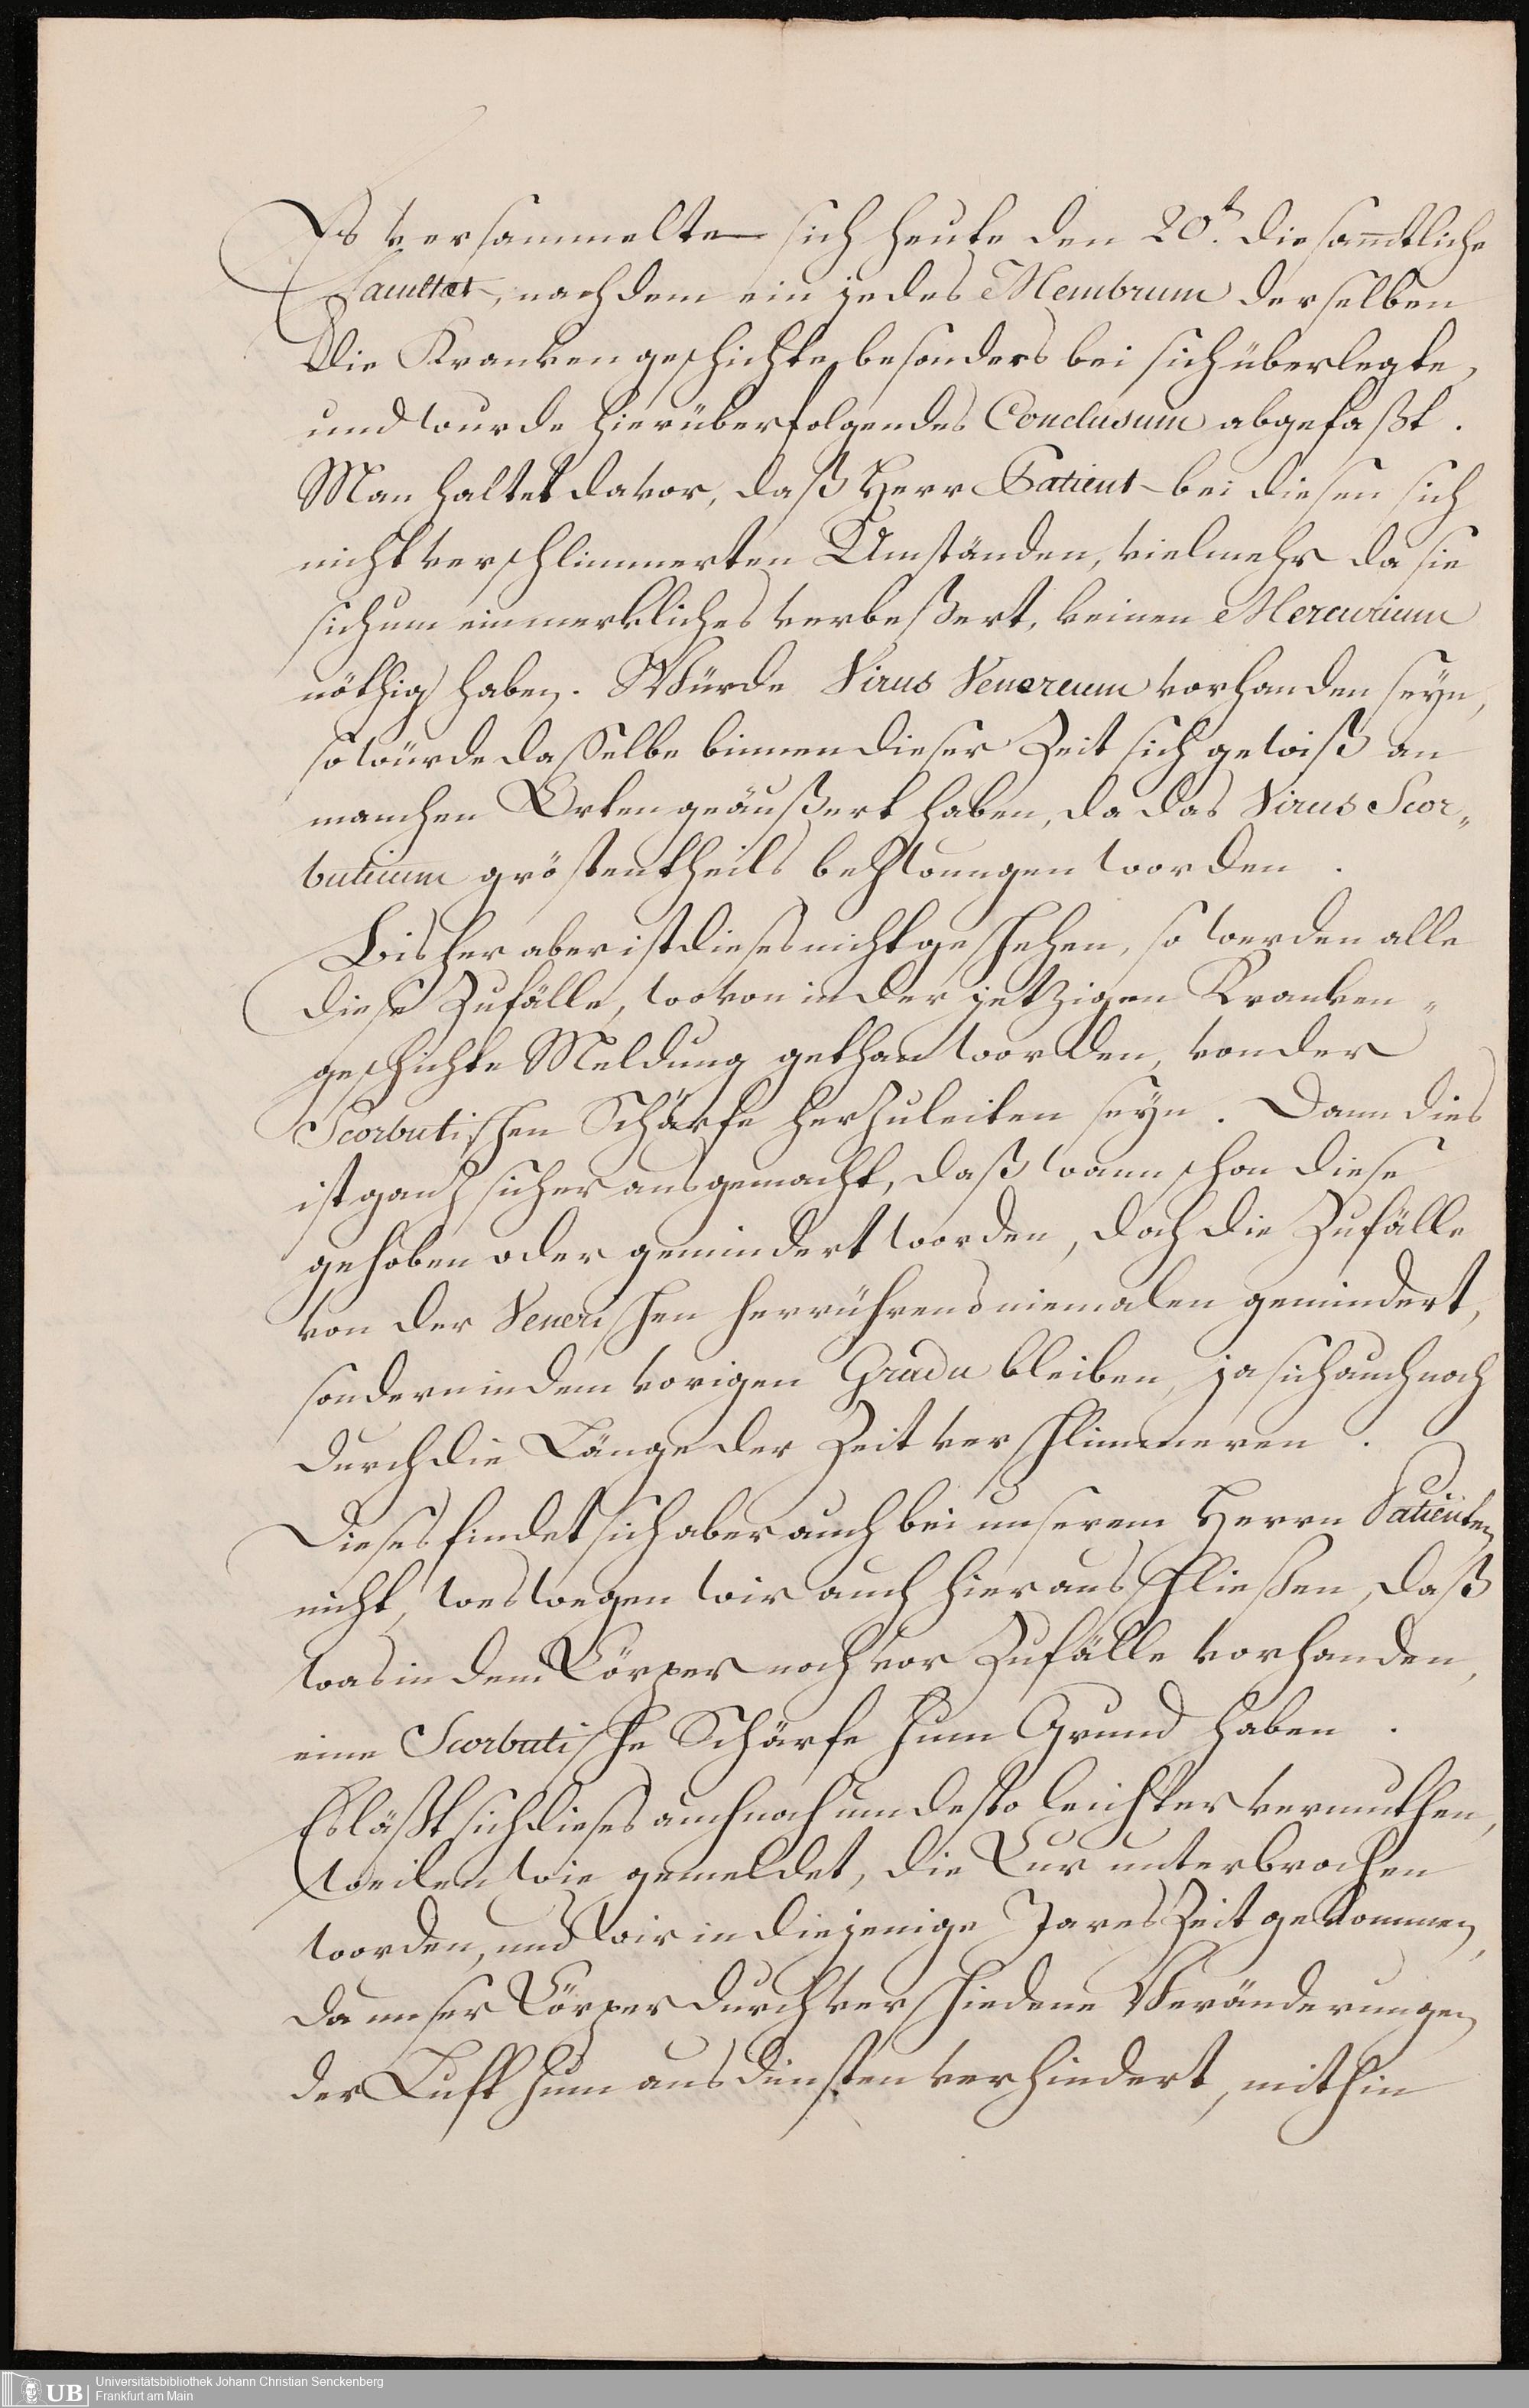 Es versammelte sich heute den 20.t die sam̄tliche
Facultæt, nachdem ein jedes Membrum derselben
die Krankengeschichte besonders bei sich überlegte,
und wurde hierüber folgendes Conclusum abgefaßt.
Man haltet davor, daß Herr Patient bei diesen sich
nicht verschlimmerten Umständen, vielmehr da sie
sich um ein merkliches verbeßert, keinen Mercurium
nöthig haben. Würde Virus Venereum vorhanden seyn,
so würde dasselbe binnen dieser Zeit sich gewiß an
manchen Orten geäußert haben, da das Virus Scor„
buticum gröstentheils bezwungen worden.
Bisher aber ist dieses nicht geschehen, so werden alle
diese Zufälle, wovon in der jetzigen Kranken„
geschichte Meldung gethan worden, von der
Scorbutischen Schärfe herzuleiten seyn. Dann dies
ist ganz sicher ausgemacht, daß wann schon diese
gehoben oder gemindert worden, doch die Zufälle
von der Venerischen herrührend niemalen gemindert,
sondern in dem vorigen Gradu bleiben, ja sich auch noch
durch die Länge der Zeit verschlimmeren.
Dieses findet sich aber auch bei unserem Herrn Patienten
nicht, weswegen wir auch hieraus schließen, daß
was in dem Cörper noch vor Zufälle vorhanden,
eine Scorbutische Schärfe zum Grund haben.
Es läßt sich dieses auch noch um desto leichter vermuthen,
weilen wie gemeldet, die Cur unterbrochen
worden, und wir in diejenige Jares Zeit gekommen,
da unser Cörper durch verschiedene Veränderungen
der Luft zum ausdünsten verhindert, mithin
UB
Universitätsbibliothek Johann Christian Senckenberg
Frankfurt am Main